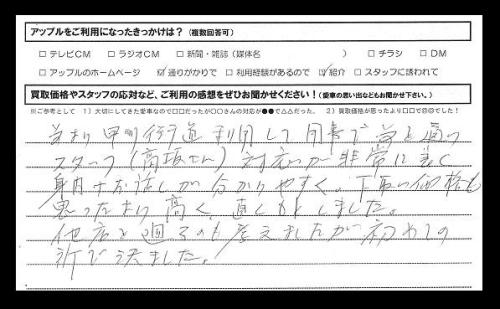 アップルをご利用になったきっかけは？（複数回答可）
□ テレビCM □ ラジオCM □ 新聞・雑誌（媒体名 ） □ チラシ □ DM
□ アップルのホームページ ☑ 通りがかりで □ 利用経験があるので ☑ 紹介 □ スタッフに誘われて
買取価格やスタッフの応対など、ご利用の感想をぜひお聞かせください！（愛車の思い出などもお聞かせ下さい。）
※ご参考として 1）大切にしてきた愛車なので□□だったが○○さんの対応が●●で△△だった。 2）買取価格が思ったより□□で◎◎でした！
甲州街道 利用して 用事で
スタッフ（高坂さん）対応が非常に
お話しが分かりやすく、下取り価格も
思ったより高く、
他店を廻るのも考えましたが初めての
所で決ました。